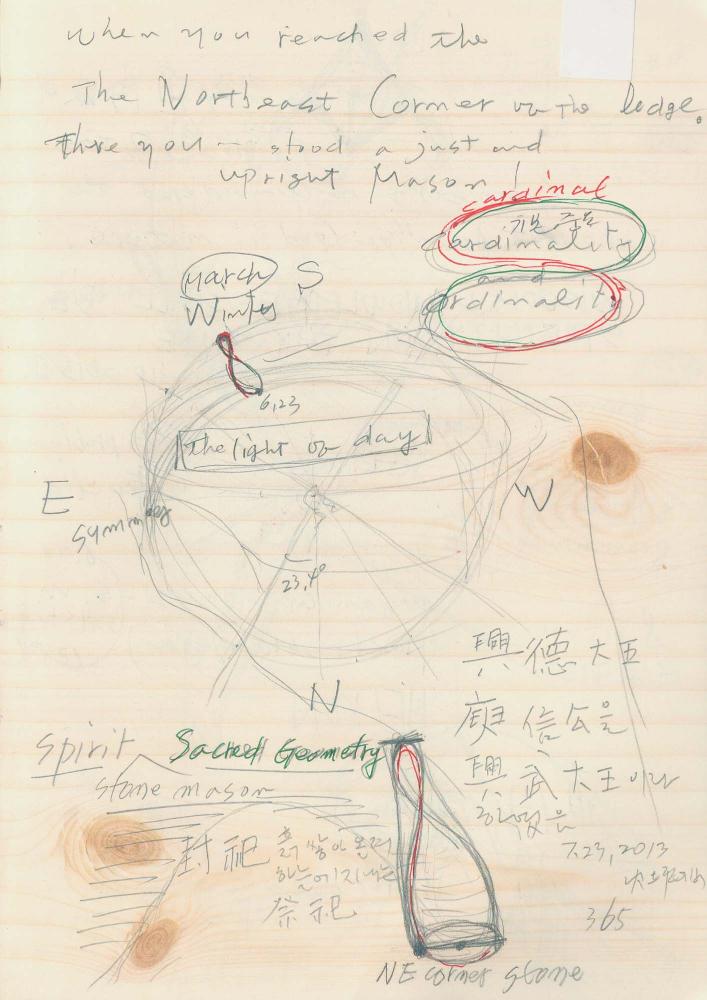 when you reached the
The Northeast Corner of the lodge.
there you stood a just and
upright Mason!
cardinal
기본 수
cardinality
and
ordinality
March S
Winter
6,23
the light of day
E
W
symmetry
23,4°
N
興德大王
庾信公을
興武大王이라
하였음
7.23, 2013
365
spirit Sacred Geometry
stone mason
封祀 흙 쌓아 올려
하늘에 지내는
祭祀
NE corner stone